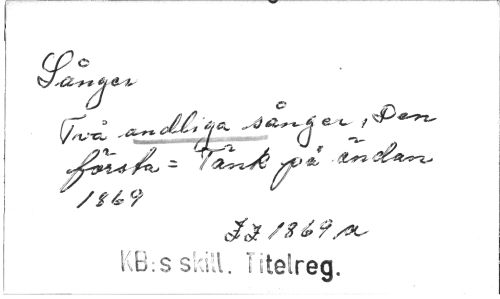 Sånger
Två andliga sånger, Den
första = Tänk på ändan
1869
1869
KB:s skill. Titelreg.